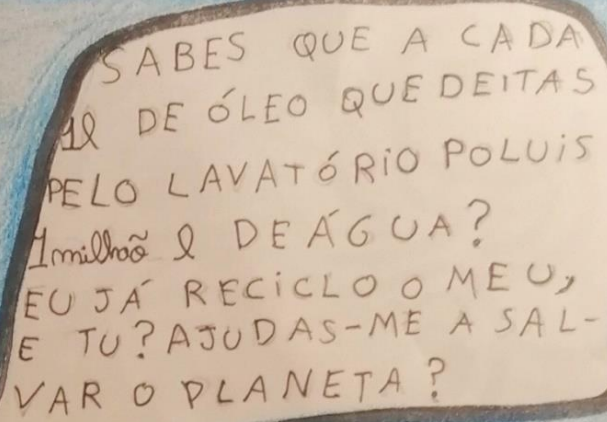 SABES QUE A CADA
1l DE ÓLEO QUE DEITAS
PELO LAVATÓRIO POLUIS
1 milhoõ l DE ÁGUA?
EU JÁ RECICLO O MEU,
E TU? AJUDAS-ME A SAL-
VAR O PLANETA?